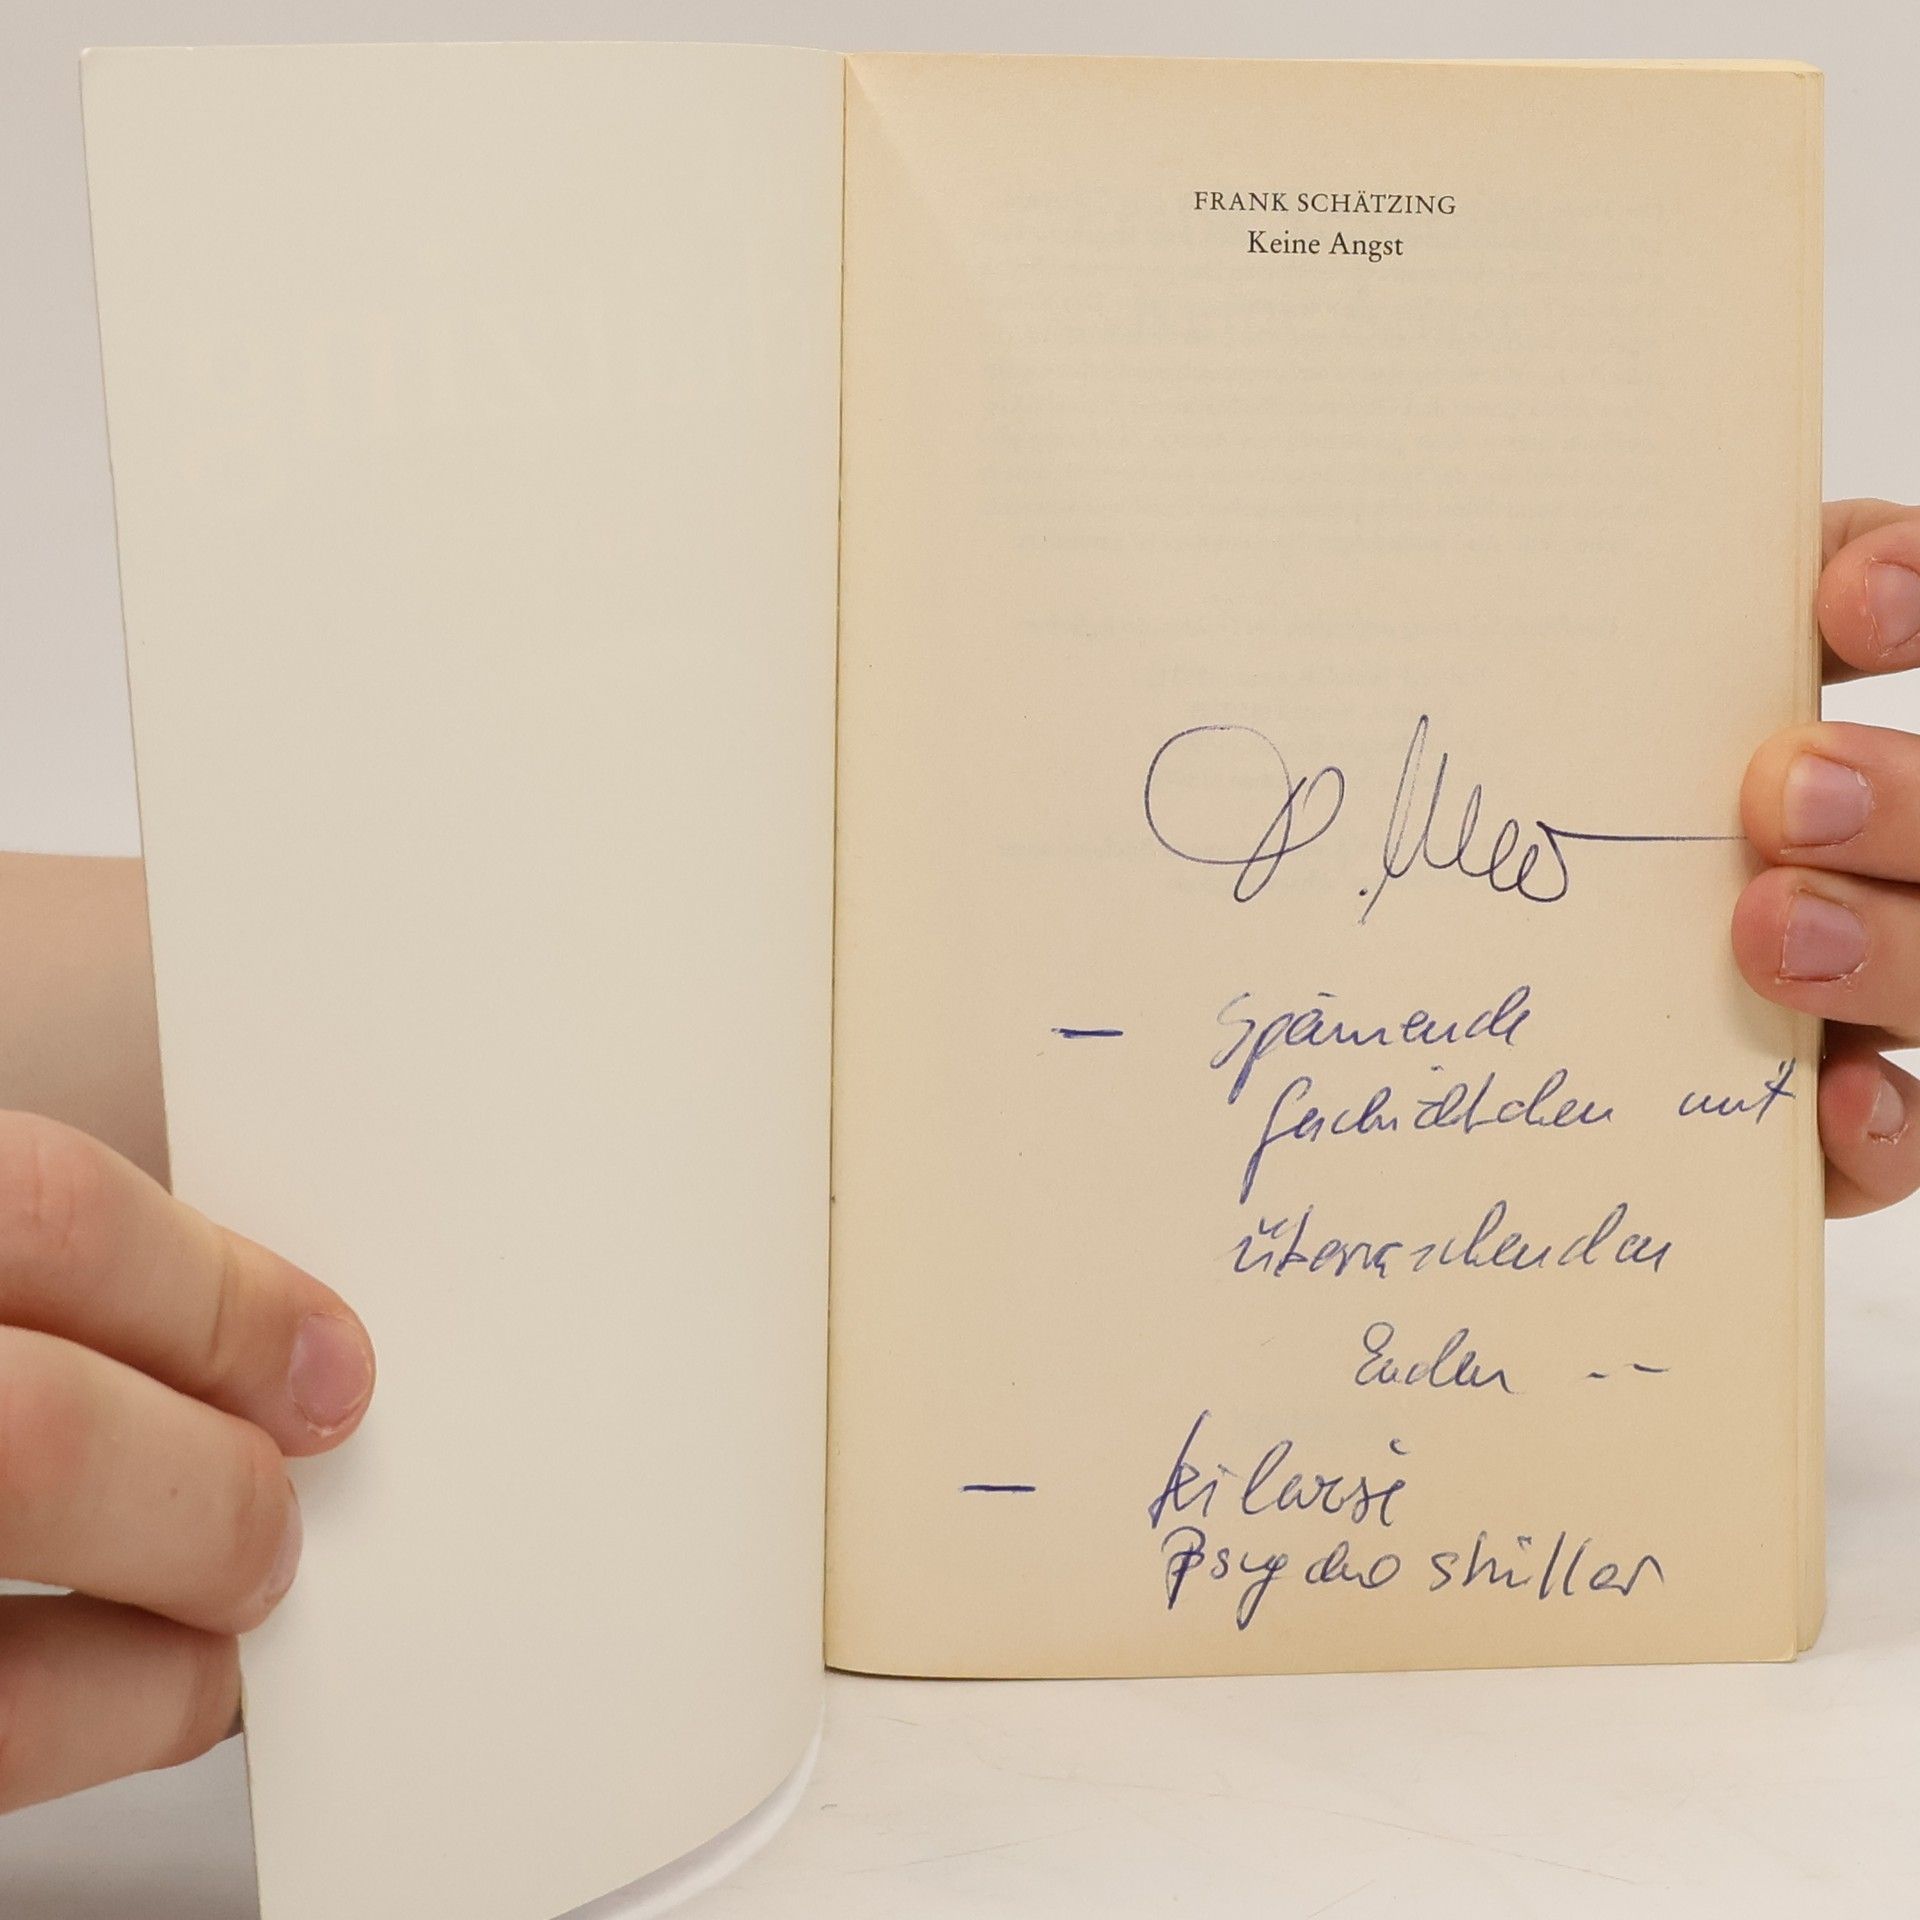 FRANK SCHÄTZING
Keine Angst
– Spannende
Geschichtchen mit
überraschenden
Enden --
–
Psychothriller